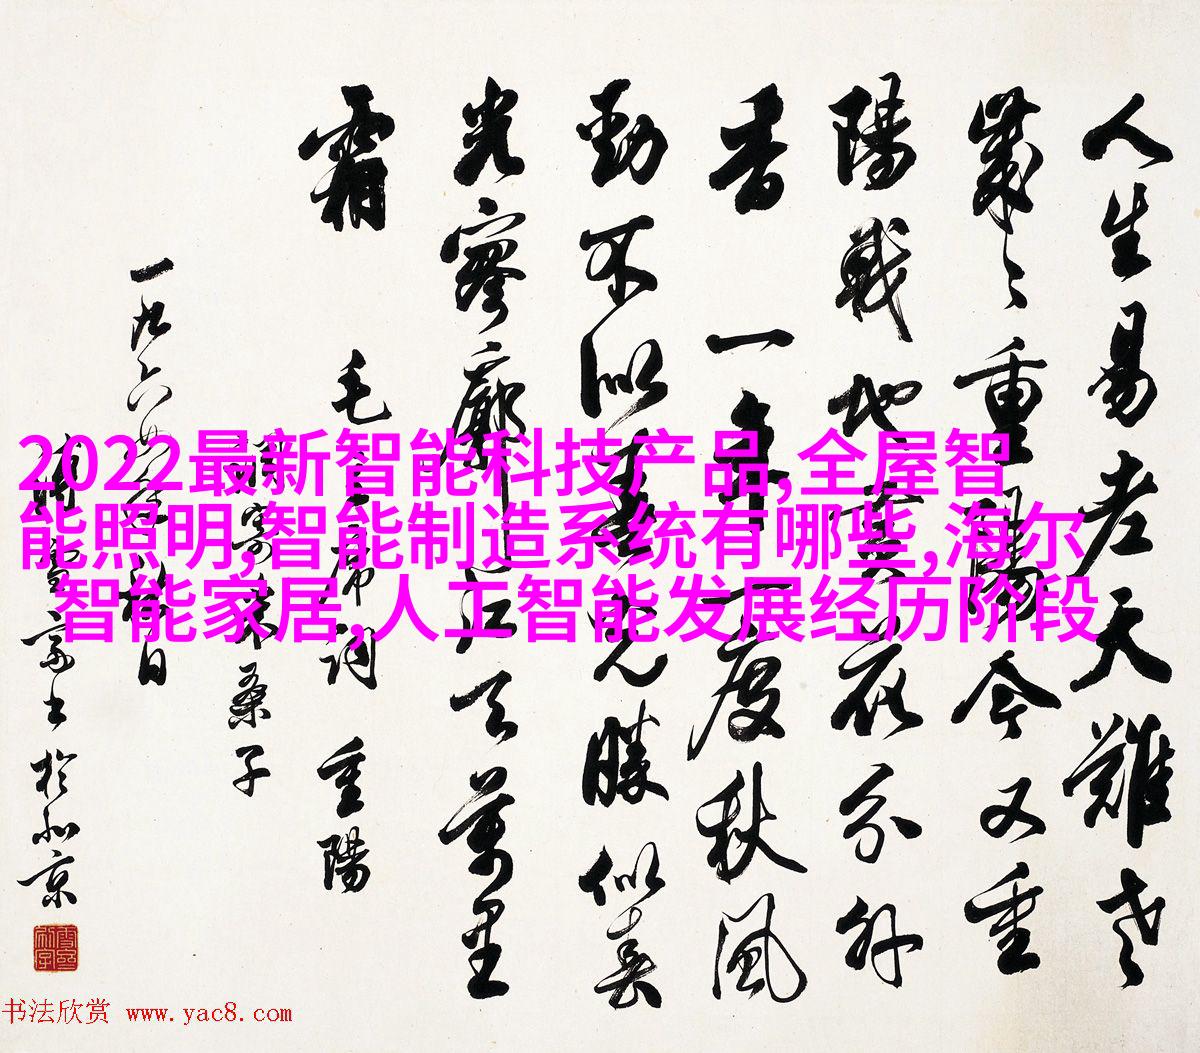 人生易老天難老
歲々重陽今又重
陽戰地黃花分外
香一年一度秋風
勁不似春光勝似春
光寥廓江天萬里
霜
毛主席詞重陽
調寄采桑子
一九六
書於北京
2022最新智能科技产品,全屋智
能照明,智能制造系统有哪些,海尔
智能家居,人工智能发展经历阶段
书法欣赏 www.yac8.com